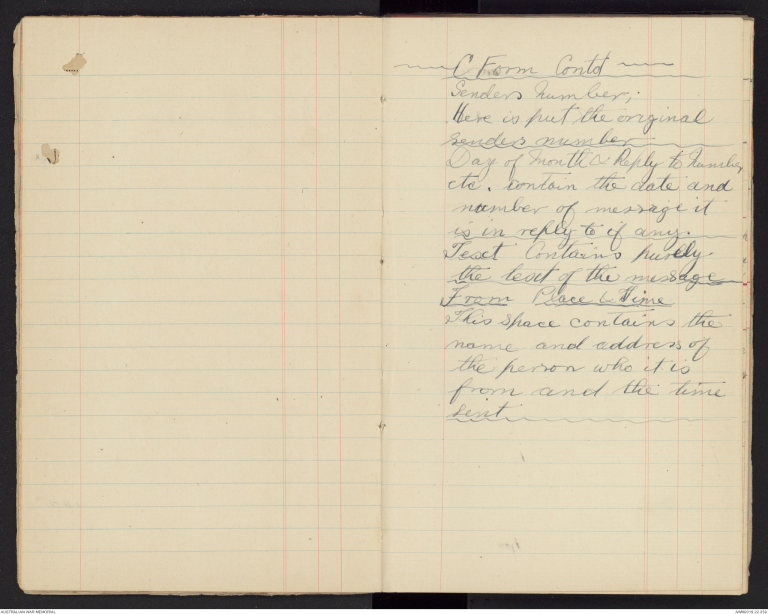 C Form Contd
Senders Number;
Here is put the original
senders number
Day of Month & Reply to Number
etc. contain the date and
number of message it
is in reply to if any.
Text Contains purely
the text of the message
From Place & Time
This space contains the
name and address of
the person who it is
from and the time
sent
AUSTRALIAN WAR MEMORIAL